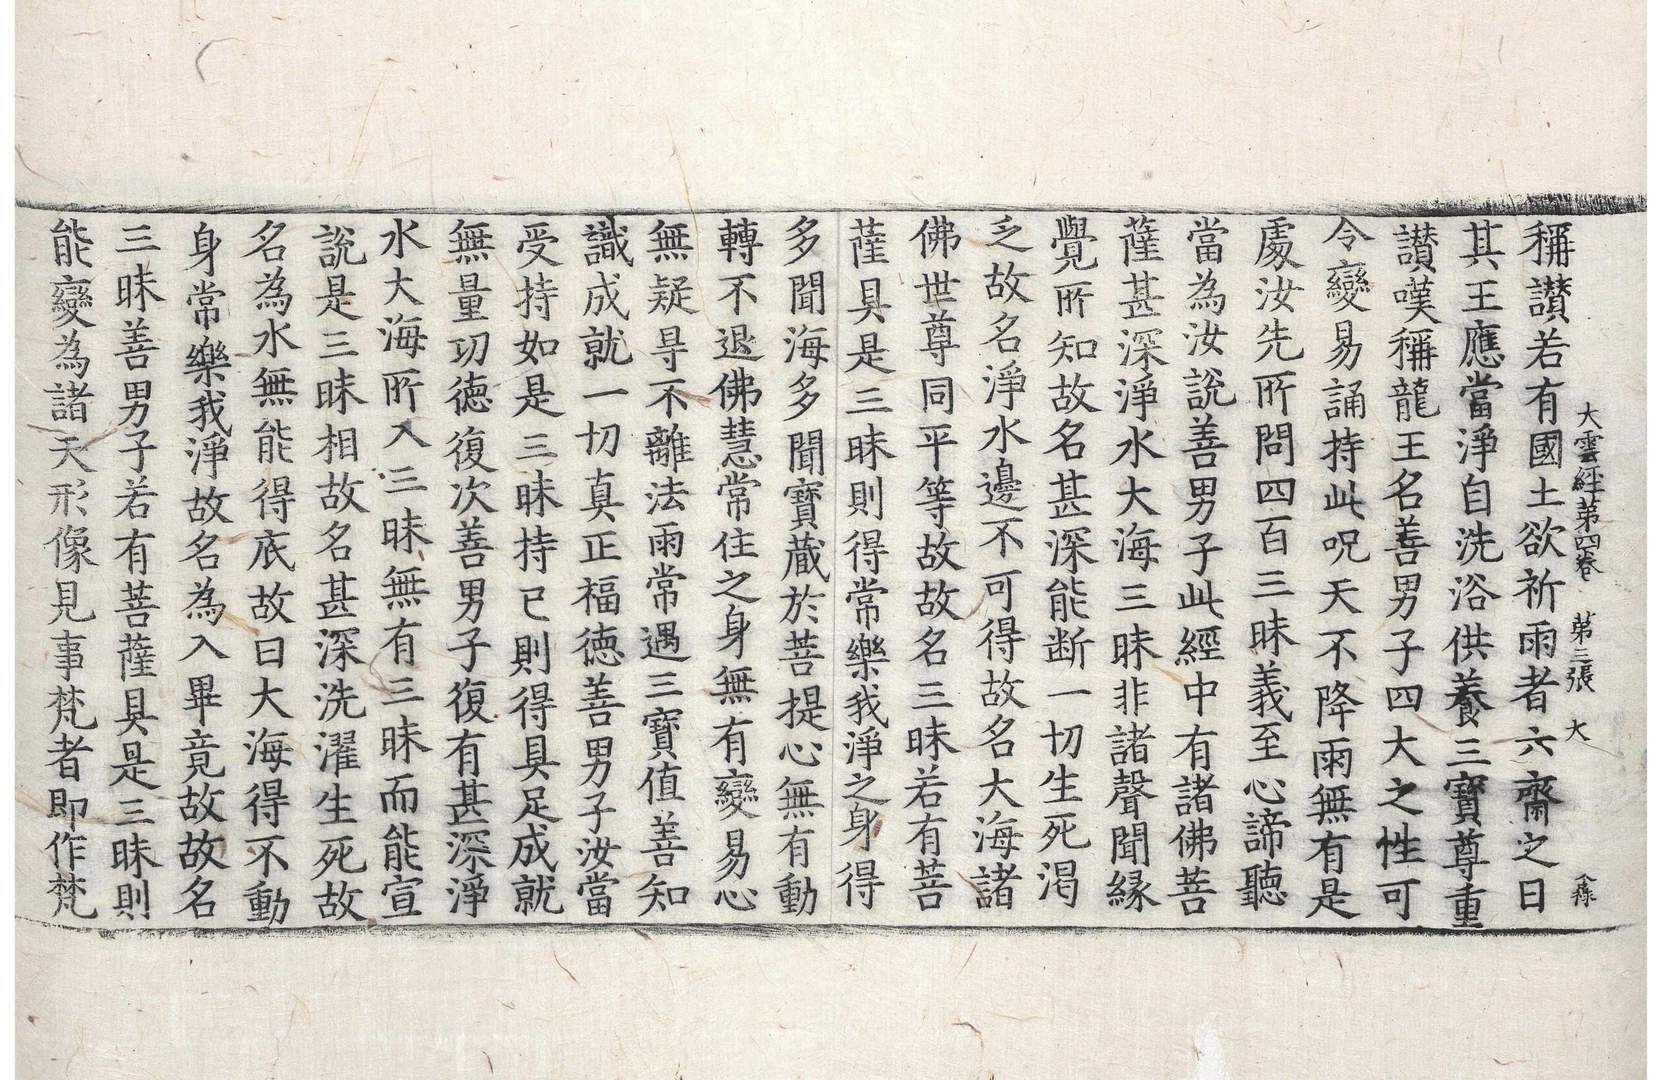 大雲經第四卷 第三張 大
稱讃若有國土欲祈雨者六齋之日
其王應當淨自洗浴供養三寶尊重
讃嘆稱龍王名善男子四大之性可
令變易誦持此呪天不降雨無有是
處汝先所問四百三昧義至心諦聽
當為汝說善男子此經中有諸佛菩
薩甚深淨水大海三昧非諸聲聞縁
覺所知故名甚深能断一切生死渇
乏故名淨水邊不可得故名大海諸
佛世尊同平等故故名三昧若有菩
薩具是三昧則得常樂我淨之身得
多聞海多聞寶蔵於菩提心無有動
轉不退佛慧常住之身無有變易心
無疑㝵不離法雨常遇三寶值善知
識成就一切真正福徳善男子汝當
受持如是三昧持已則得具足成就
無量功徳復次善男子復有甚深淨
水大海所入三昧無有三昧而能宣
說是三昧相故名甚深洗濯生死故
名為水無能得底故曰大海得不動
身常樂我淨故名為入畢竟故故名
三昧善男子若有菩薩具是三昧則
能變為諸天形像見事梵者即作梵